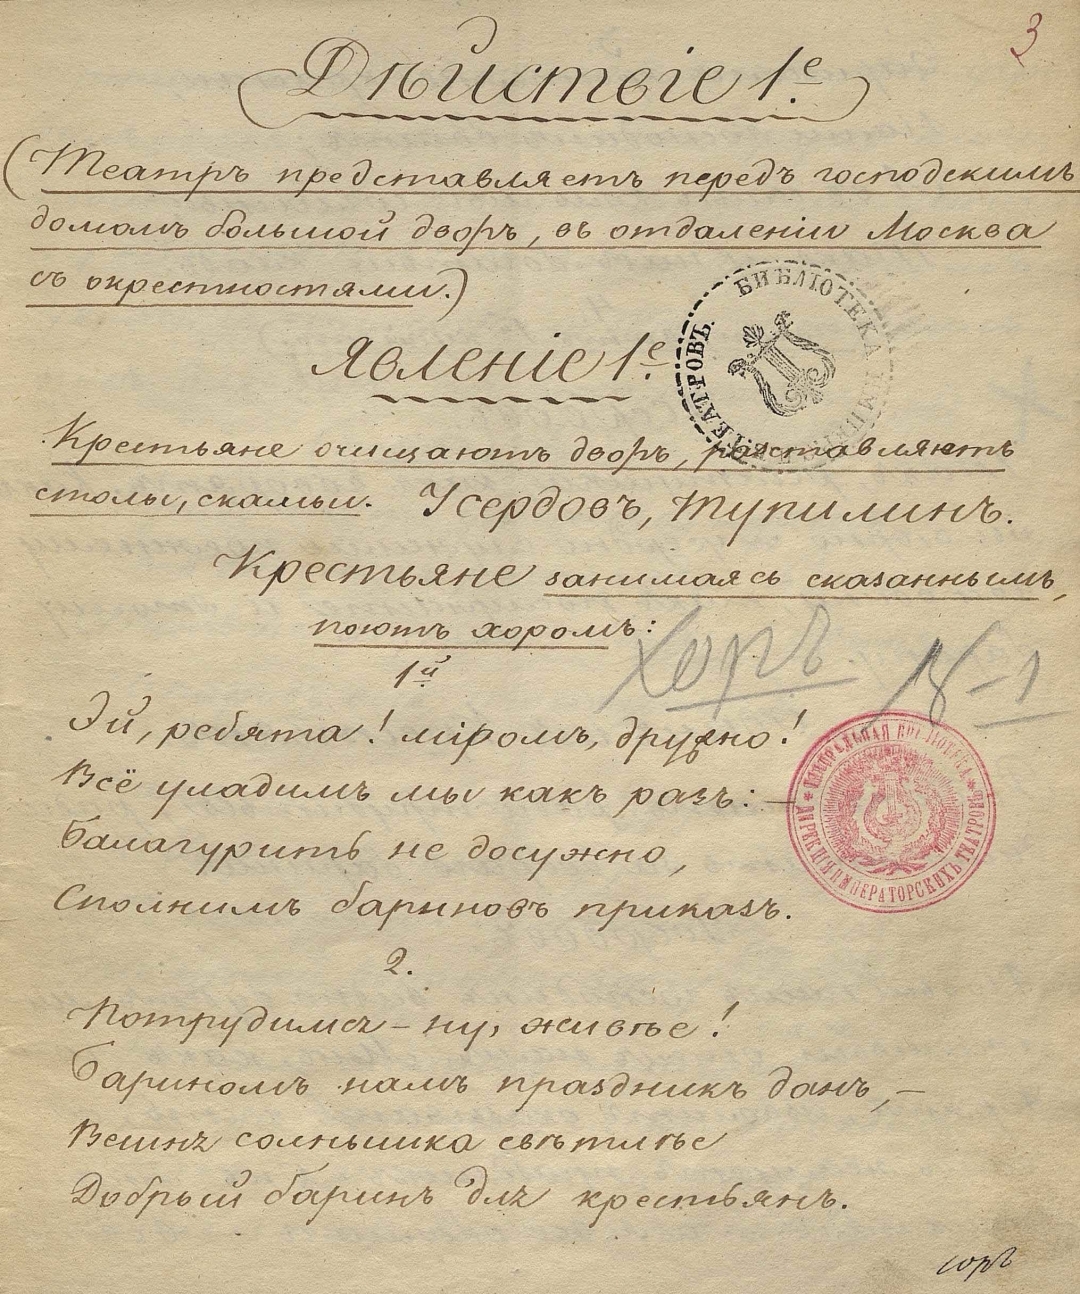 3
Дѣйствіе 1е.
(Театръ представляетъ передъ господскимъ
домомъ большой дворъ, въ отдаленіи Москва
съ окрестностями.)
БИБЛІОТЕКА ТЕАТРОВЪ.
Явленіе 1е.
Крестьяне очищаютъ дворъ, разставляютъ
столы, скамьи. Усердовъ, Тупилинъ.
Крестьяне занимаясь сказаннымъ,
поютъ хоромъ:
Хоръ № 1
1й
Эй, ребята! міромъ, дружно!
Всё уладимъ мы какъ разъ: —
ЦЕНТРАЛЬНАЯ БИБЛІОТЕКА ДИРЕКЦІЯ ИМПЕРАТОРСКИХЪ ТЕАТРОВЪ
Балагурить не досужно,
Сполнимъ бариновъ приказъ.
2.
Потрудимся – ну, живѣе!
Бариномъ намъ праздникъ данъ, –
Вешня солнышка свѣтлѣе
Добрый баринъ для крестьянъ.